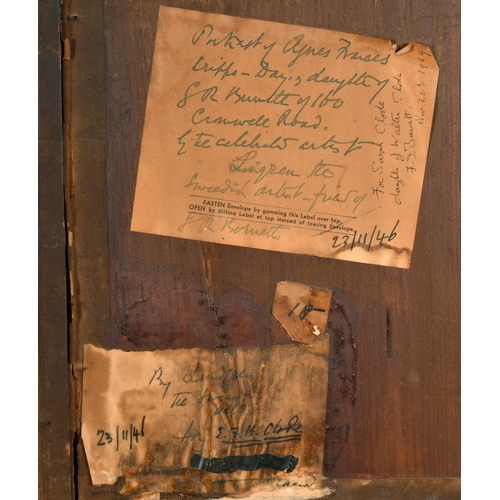 Portrait of Agnes Frances
Cripps-Day, daughter of
S R Burnett of 100
Cromwell Road.
by the celebrated artist
Lingren the
Swedish artist - friend of
FASTEN Envelope by gumming this Label over top.
OPEN by slitting Label at top instead of tearing Envelope.
S R Burnett
23/11/46
For Sarah Clode
daughter of Walter Clode
Nov 22
18-
By
The
for E.F.H. Clode
23/11/46